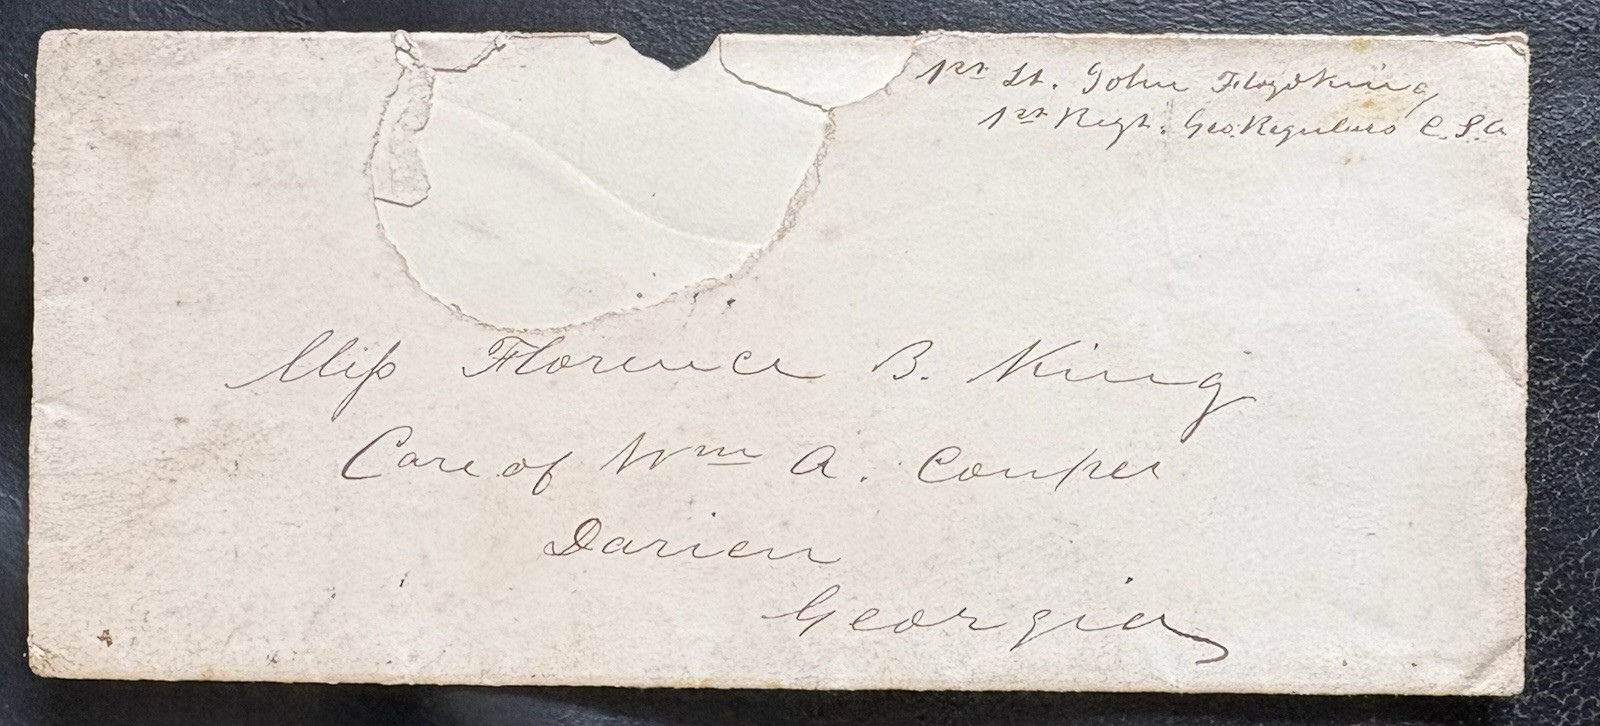 1st Lt. John Floyd King
1st Regt. Geo. Regulars C.S.A
Miss Florence B. King
Care of Wm A. Couper
Darien
Georgia